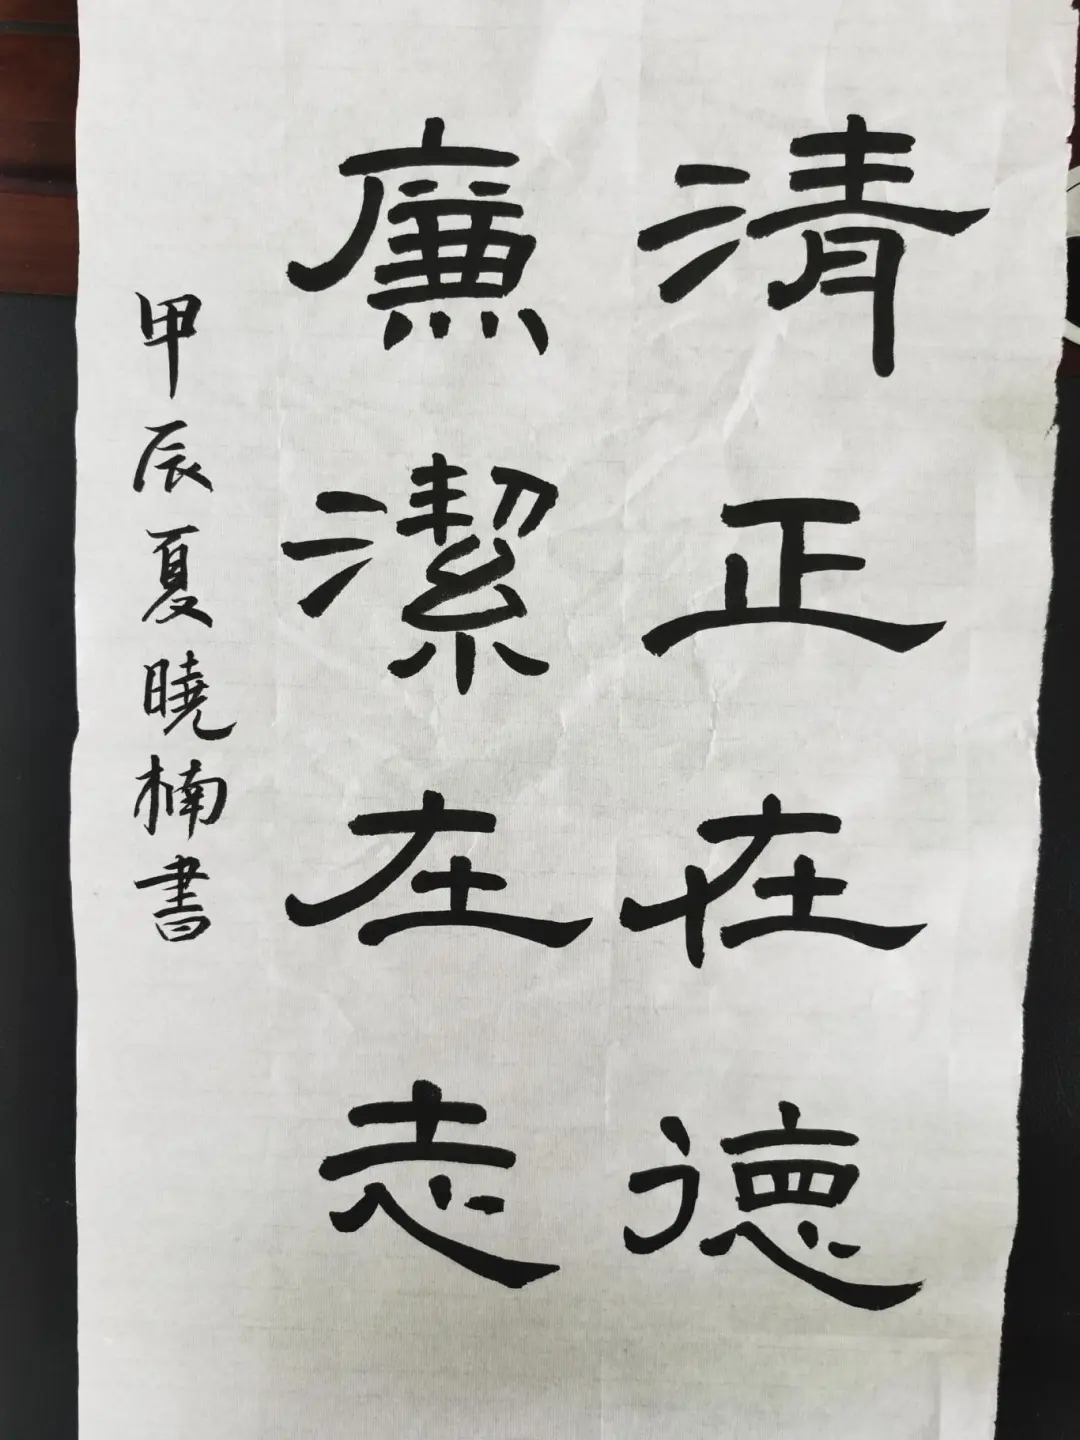 清正在德
廉潔在志
甲辰夏曉楠書